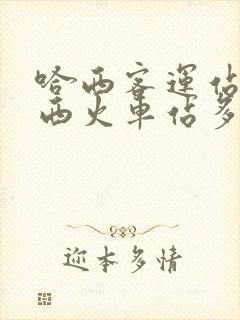 哈西客運佔
西火車佔多
迩本多情